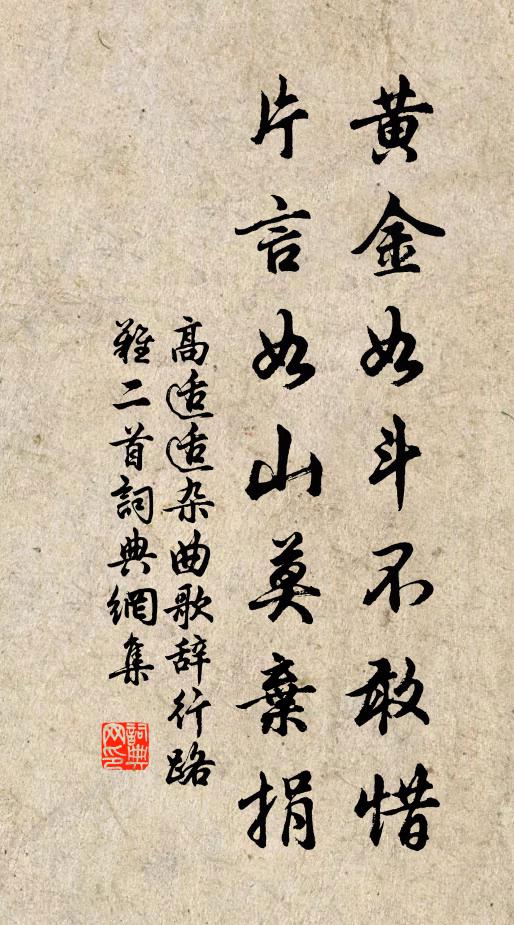 黄金如斗不敢惜
片言如山莫棄捐
高适适杂曲歌辞行路
難二首詞典網集
詞典
网印